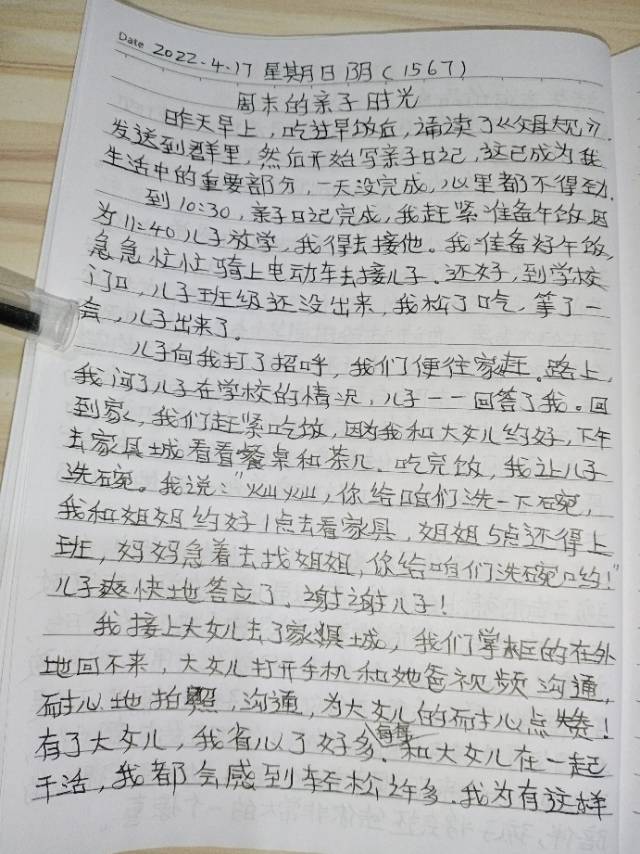 Date 2022.4.17 星期日 阴(1567)
周末的亲子时光
昨天早上，吃过早饭后，诵读了《父母规》，
发送到群里，然后开始写亲子日记，这已成为我
生活中的重要部分，一天没完成，心里都不得劲.
到10:30，亲子日记完成，我赶紧准备午饭，因
为11:40儿子放学，我得去接他。我准备好午饭，
急急忙忙骑上电动车去接儿子。还好，到学校
门口，儿子班级还没出来，我松了口气，等了一
会，儿子出来了。
儿子向我打了招呼，我们便往家赶。路上，
我问了儿子在学校的情况，儿子一一回答了我。回
到家，我们赶紧吃饭，因为我和大女儿约好，下午
去家具城看看餐桌和茶几。吃完饭，我让儿子
洗碗。我说："灿灿，你给咱们洗一下碗，
我和姐姐约好1点去看家具，姐姐5点还得上
班，妈妈急着去找姐姐，你给咱们洗碗哟！"
儿子爽快地答应了、谢谢儿子！
我接上大女儿去了家俱城，我们掌柜的在外
地回不来，大女儿打开手机和她爸视频沟通，
耐心地拍照，沟通，为大女儿的耐心点赞！
有了大女儿，我省心了好多，每每和大女儿在一起
干活，我都会感到轻松许多.我为有这样